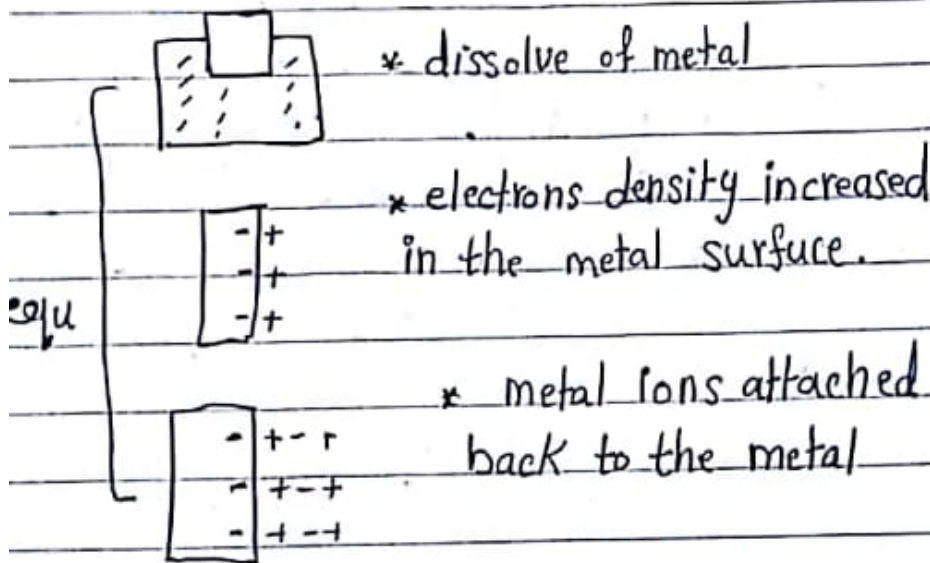 * dissolve of metal
* electrons density increased
in the metal surface.
- +
- +
- +
equ
* metal ions attached
back to the metal
- + - r
- + - +
- + - +